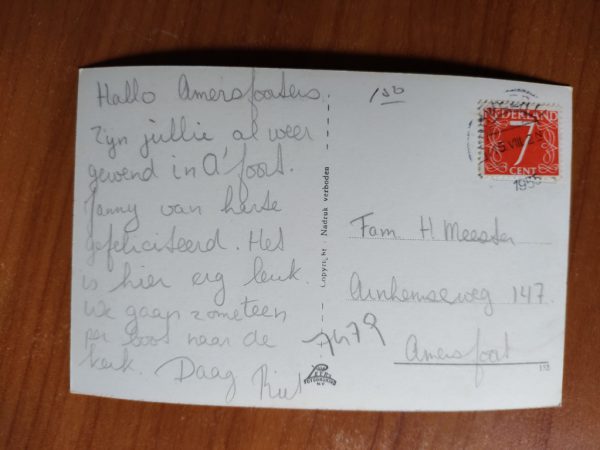 Hallo Amersfoorters
Zijn jullie al weer
gewend in A'foort.
Janny van harte
gefeliciteerd. Het
is hier erg leuk.
We gaan zometeen
per boot naar de
kerk. Daag Riet
Nadruk verboden
150
NEDERLAND
7
CENT
1955
Fam. H Meester
Arnhemseweg 147.
Amersfoort
7479
193